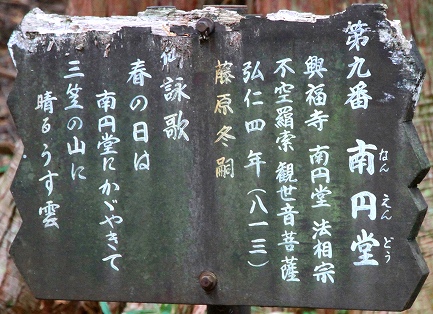 第九番 南円堂
なん えん どう
興福寺 南円堂 法相宗
不空羂索 観世音菩薩
弘仁四年(八一三)
藤原冬嗣
御詠歌
春の日は
南円堂にかゞやきて
三笠の山に
晴るうす雲